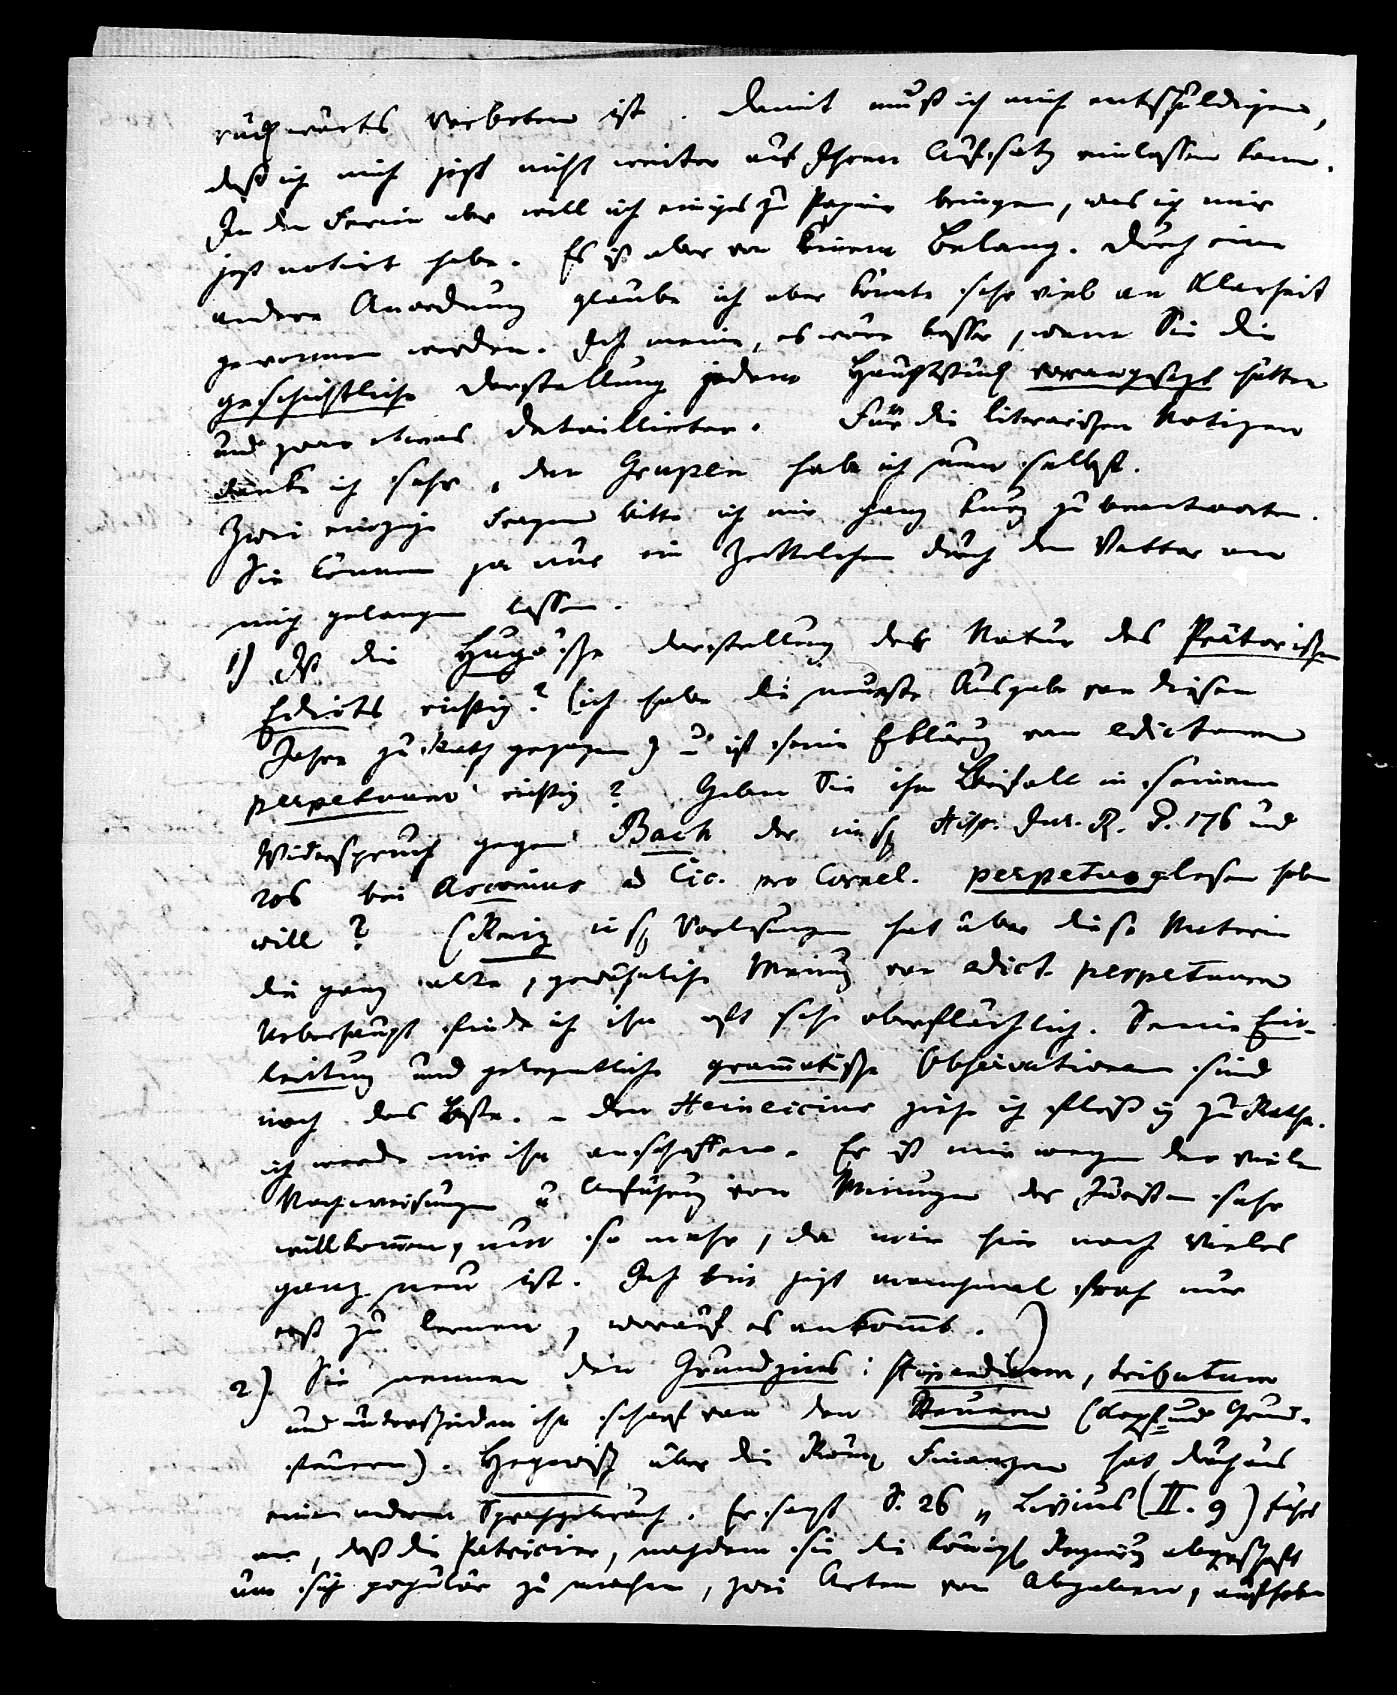 rückwärts verboten ist. Damit muß ich mich entschuldigen,
daß ich mich jezt nicht weiter auf Ihren Aufsatz einlassen kann.
In den Ferien aber will ich einiges zu Papier bringen, was ich mir
jezt notirt habe. Es ist aber von keinem Belang. Durch eine
andere Anordnung glaube ich aber könnte sehr viel an Klarheit
gewonnen werden. Ich meine, es wäre besser, wenn Sie die
geschichtliche Darstellung jedem Hauptstück vorangesezt hätten
und zwar etwas detaillirter. Für die literarischen Notizen
danke ich sehr, den Grupen habe ich nun selbst.
Zwei einzige Fragen bitte ich mir ganz kurz zu beantworten.
Sie können ja nur ein Zettelchen durch den Vetter an
mich gelangen lassen.
1) Ist die Hugo'sche Darstellung der Natur des Prätorischen
Edicts richtig? (ich habe die neueste Ausgabe von diesem
Jahre zu Rath gezogen) u ist seine Erklärung vom edictum
perpetuum richtig? Geben Sie ihm Beifall in seinem
Widerspruch gegen Bach der in s. Hist. Jur. R. P. 176 und
206 bei Asconius ad Cic. pro Cornel. perpetuo gelesen haben
will? (Reiz in s. Vorlesungen hat über diese Materie
die ganz alte, gewöhnliche Meinung von edict. perpetuum
Ueberhaupt finde ich ihn oft sehr oberflächlich. Seine Ein-
leitung und gelegentliche grammatische Observationen sind
noch das Beste. – Den Heineccius ziehe ich fleißig zu Rathe.
ich werde mir ihn anschaffen. Er ist mir wegen der vielen
Nachweisungen u Anführung von Meinungen der Juristen sehr
willkommen, um so mehr, da mir hier noch vieles
ganz neu ist. Ich bin jezt manchmal froh nur
erst zu lernen, worauf es ankommt.)
2) Sie nennen den Grundzins: stipendium, tributum
und unterscheiden ihn scharf von den Steuern (Kopf- und Grund-
steuern). Hegewisch über die Röm. Finanzen hat durchaus
einen andern Sprachgebrauch. Er sagt S. 26 „Livius (II. 9) führt
an, daß die Patricier, nachdem sie die königl. Regierung abgeschafft
um sich populär zu machen, zwei Arten von Abgaben, aufhoben